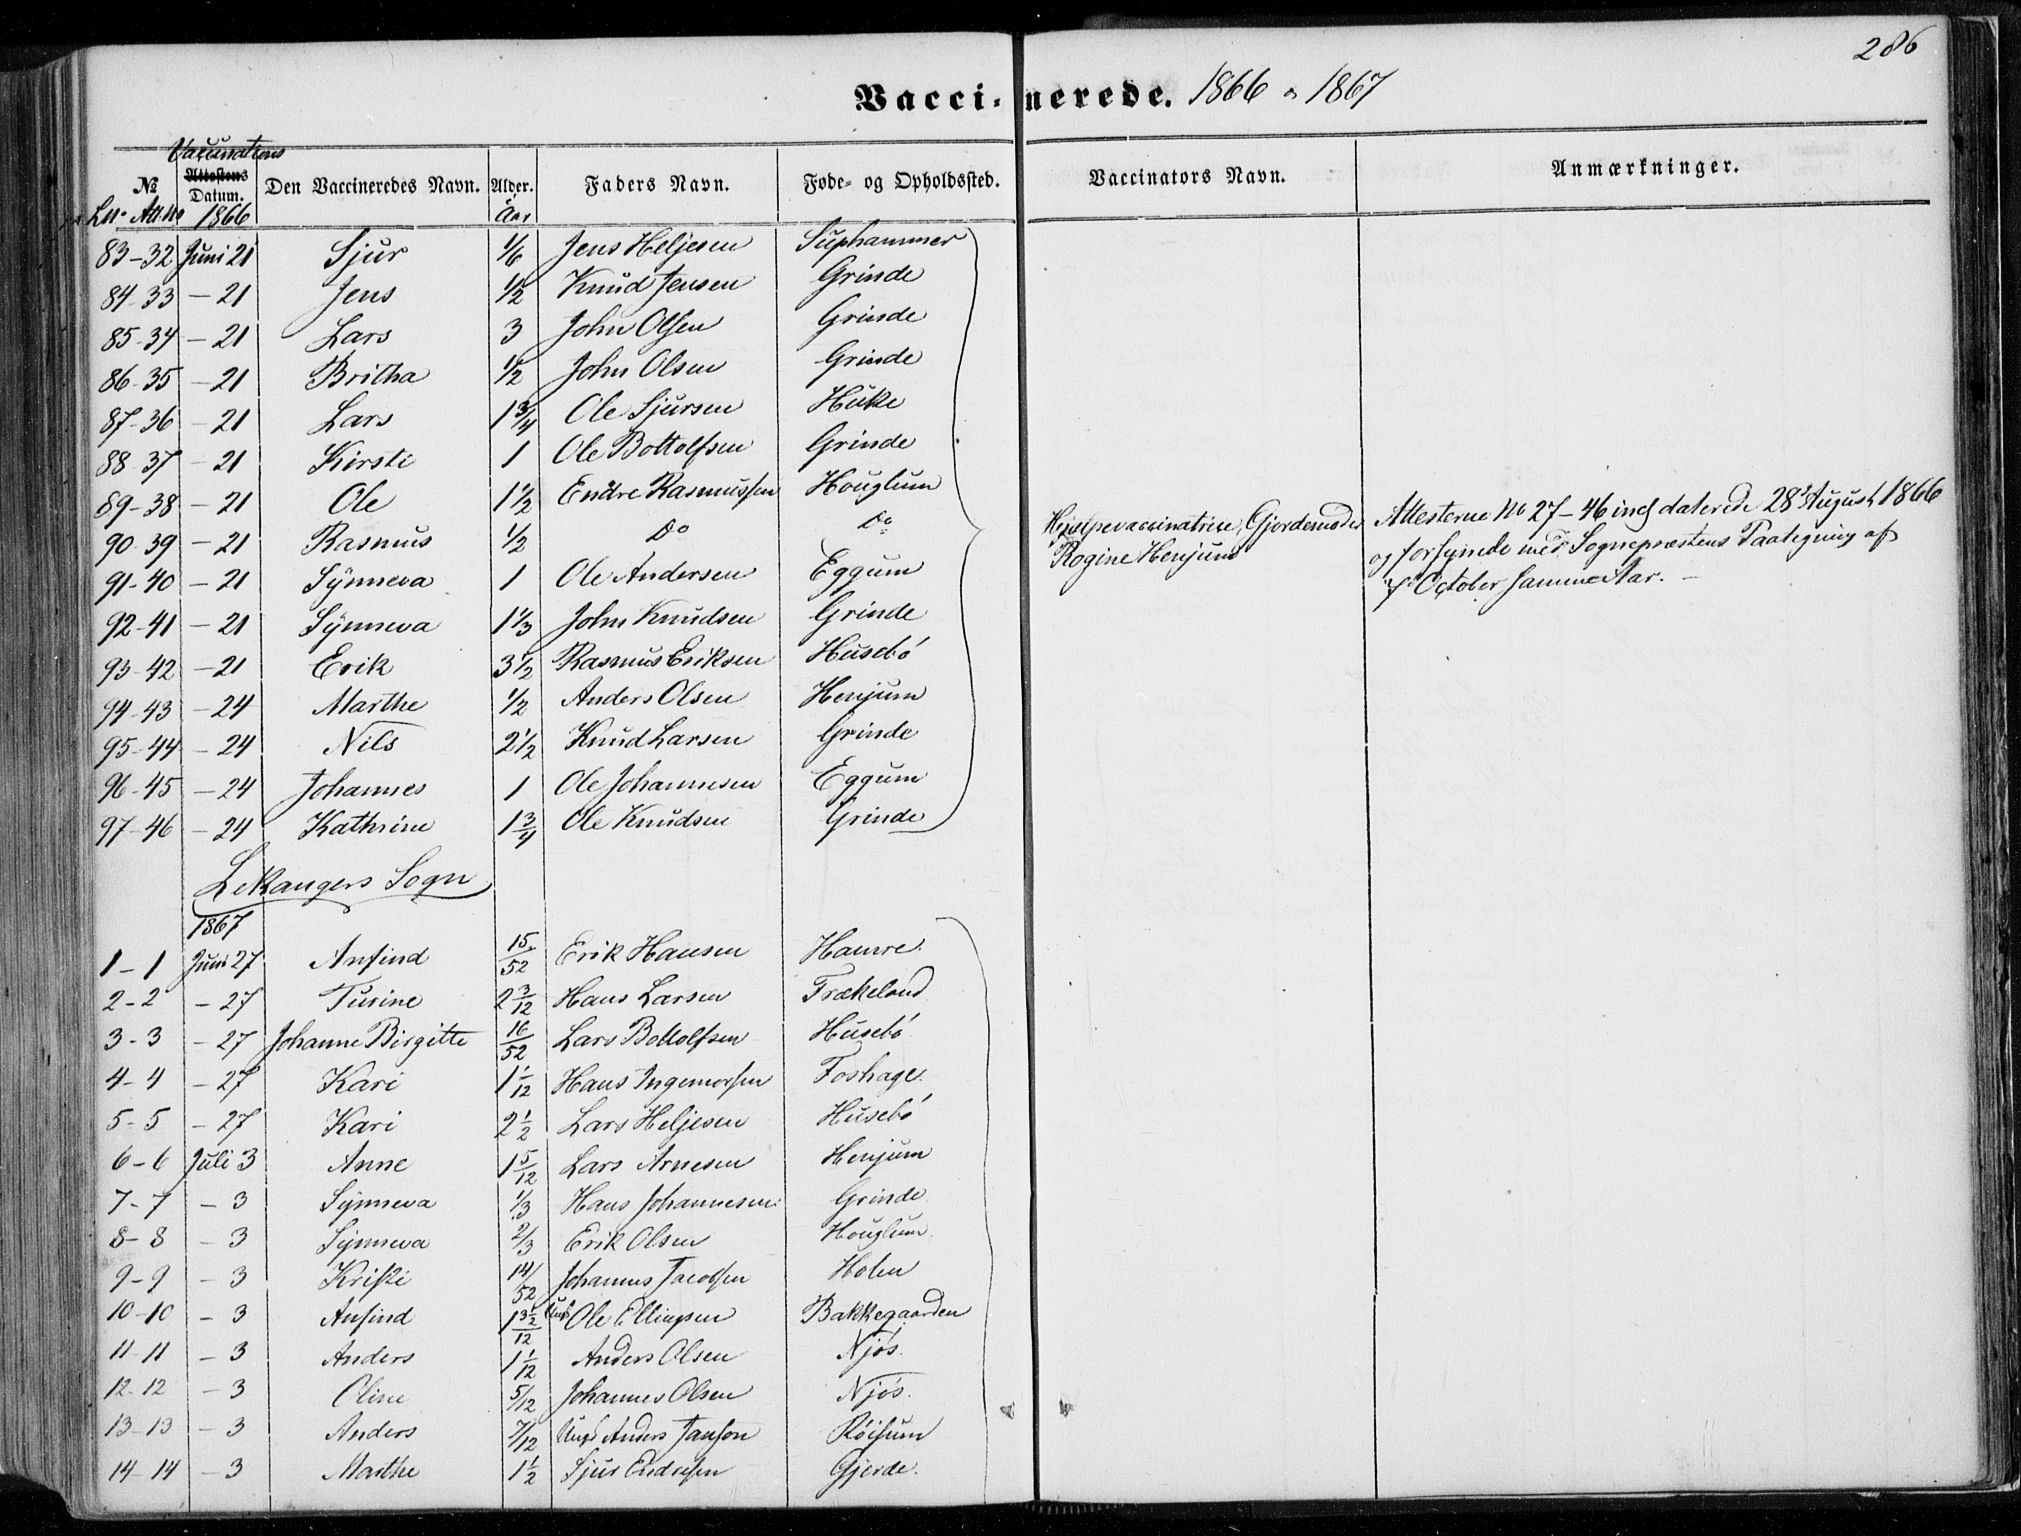 286
Vacci- nerede. 1866 & 1867
Vaccinations
№ Attestens Datum. Den Vaccineredes Navn. Alder. Faders Navn. Føde- og Opholdssted. Vaccinators Navn. Anmærkninger.
Lno Att.No 1866 Aar
83-32 Juni 21 Sjur 1/6 Jens Heljesen Suphammer
84-33 - 21 Jens 1/2 Knud Jensen Grinde
85-34 - 21 Lars 3 John Olsen Grinde
86-35 - 21 Britha 1/2 John Olsen Grinde
87-36 - 21 Lars 1 3/4 Ole Sjursen Huke
88-37 - 21 Kirsti 1 Ole Bottolfsen Grinde
89-38 - 21 Ole 1 1/2 Endre Rasmussen Houglum
90-39 - 21 Rasmus 1/2 Do Do
91-40 - 21 Synneva 1 Ole Andersen Eggum
92-41 - 21 Synneva 1 1/3 John Knudsen Grinde
93-42 - 21 Erik 3 1/2 Rasmus Eriksen Husebø
94-43 - 24 Marthe 1/2 Anders Olsen Henjum
95-44 - 24 Nils 2 1/2 Knud Larsen Grinde
96-45 - 24 Johannes 1 Ole Johannesen Eggum
97-46 - 24 Kathrine 1 3/4 Ole Knudsen Grinde
Hjælpevaccinatrise, Gjordemoder
Rogine Henjum
Attesterne No 27-46 incl daterede 28 August 1866
og forsynede med Sognepræstens Paategning af
7 October samme Aar. -
Lekangers Sogn
1867
1-1 Juni 27 Anfind 15/52 Erik Hansen Hamre
2-2 - 27 Turine 2 3/12 Hans Larsen Trækeland
3-3 - 27 Johanne Birgitte 16/52 Lars Bottolfsen Husebø
4-4 - 27 Kari 1 1/12 Hans Ingemorsen Foshage
5-5 - 27 Kari 2 1/2 Lars Heljesen Husebø
6-6 Juli 3 Anne 1 5/12 Lars Arnesen Henjum
7-7 - 3 Synneva 1/3 Hans Johannesen Grinde
8-8 - 3 Synneva 2/3 Erik Olsen Houglum
9-9 - 3 Kristi 14/52 Johannes Jacobsen Holen
10-10 - 3 Anfind Ole Ellingsen Bakkegaarden
11-11 - 3 Anders 1 1/12 Anders Olsen Njøs
12-12 - 3 Oline 5/12 Johannes Olsen Njøs
13-13 - 3 Anders 7/12 Ungk Anders Janson Røisum
14-14 - 3 Marthe 1 1/2 Sjur Endresen Gjerde